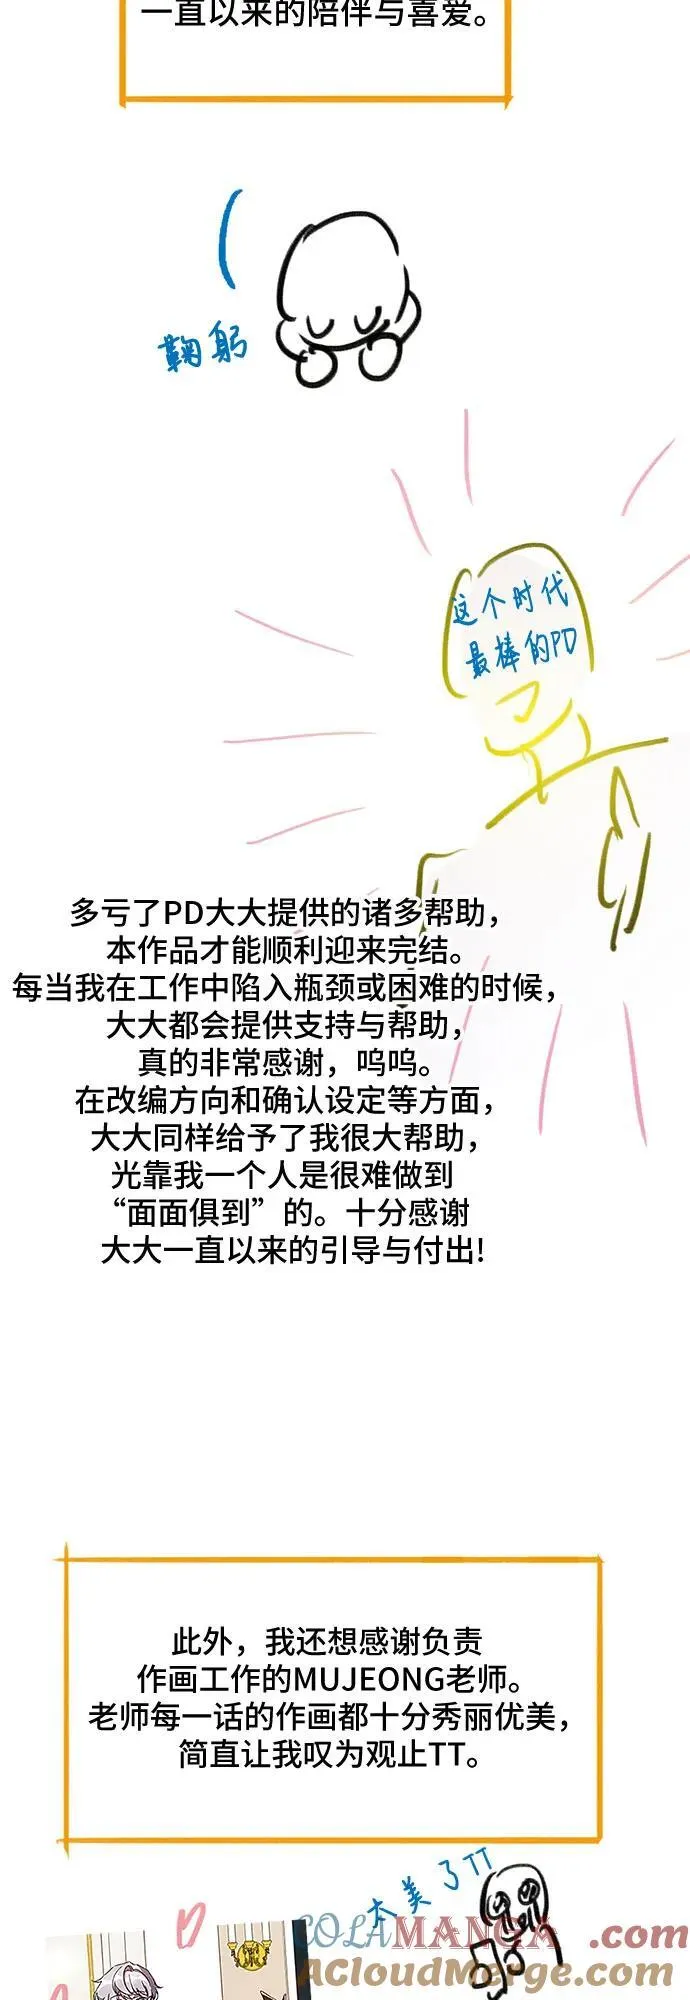 一直以来的陪伴与喜爱。
鞠躬
这个时代
最棒的PD
多亏了PD大大提供的诸多帮助，
本作品才能顺利迎来完结。
每当我在工作中陷入瓶颈或困难的时候，
大大都会提供支持与帮助，
真的非常感谢，呜呜。
在改编方向和确认设定等方面，
大大同样给予了我很大帮助，
光靠我一个人是很难做到
“面面俱到”的。十分感谢
大大一直以来的引导与付出!
此外，我还想感谢负责
作画工作的MUJEONG老师。
老师每一话的作画都十分秀丽优美，
简直让我叹为观止TT。
太美了TT
COLAMANGA.com
ACloudMerge.com